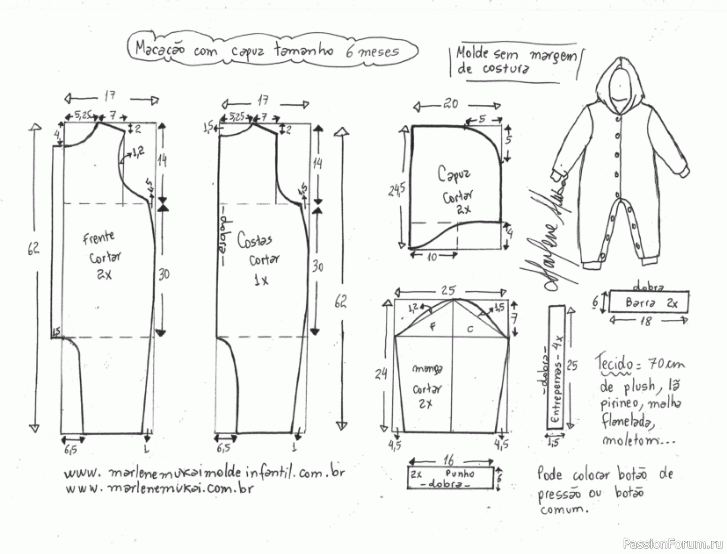 Macacão com capuz tamanho 6 meses
Molde sem margem
de costura
17
5,25
7
4
2
1,2
14
1,5
62
Frente
cortar
2x
30
1,5
6,5
1
17
1,5
5,25
7
2
14
1,5
-dobra-
Costas
cortar
1x
30
62
6,5
1
20
5
5
Capuz
cortar
2x
24,5
4
10
25
1,2
1,5
7
F
C
24
manga
cortar
2x
4,5
4,5
16
2x Punho
-dobra-
6
-dobra-
Entrepernas-4x
25
1,5
dobra
6
Barra 2x
18
Marlene Mukai
Tecido = 70cm
de plush, lã
pirineo, malha
flanelada,
moletom...
Pode colocar botão de
pressão ou botão
comum.
www.marlenemukaimoldeinfantil.com.br
www.marlenemukai.com.br
PassionForum.ru